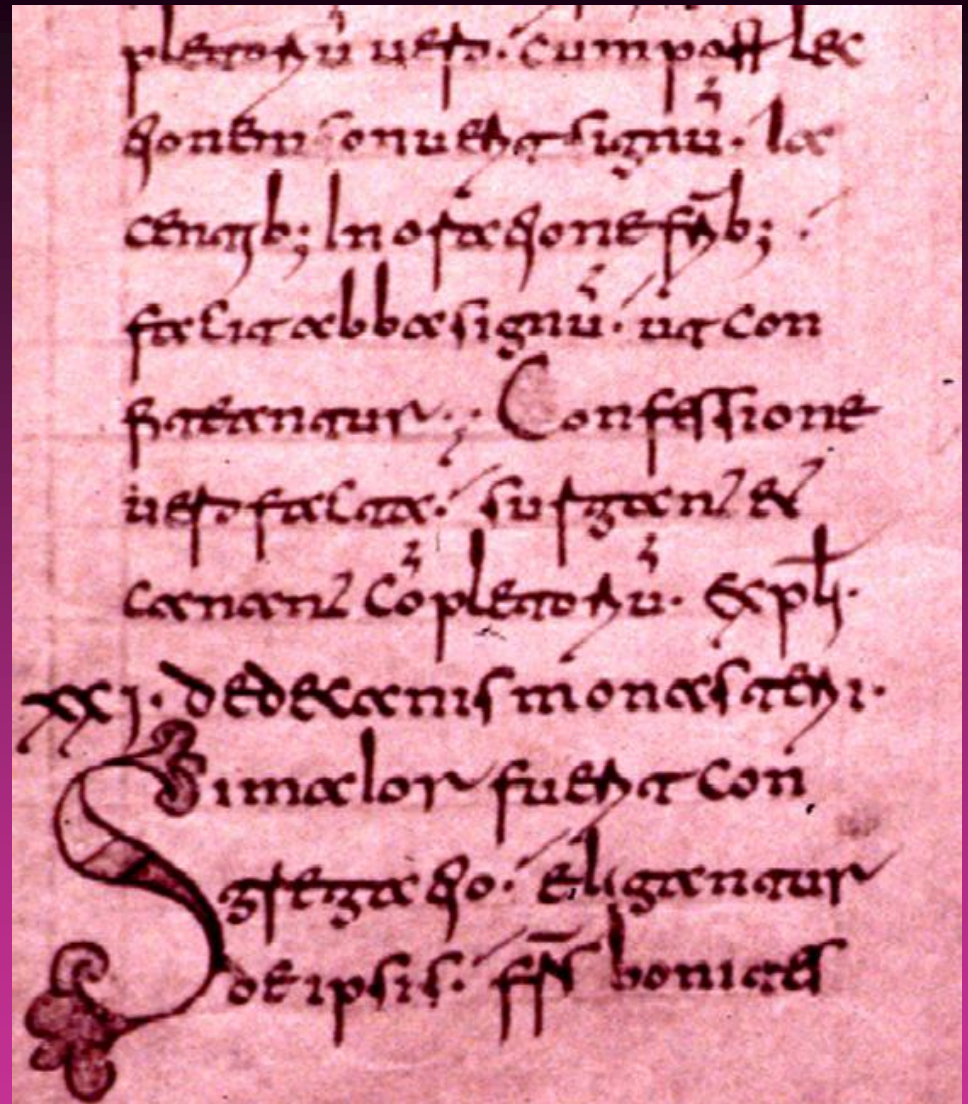 pletoriū uero. cum post lec
tionem sonuerit signū. ia
centib; In oratione frīb;
faciat abba signū. ut con
fiteantur; Confessione
uero facta. surgant et
canant cōpletoriū. Expli.
xxi. de decanis monasteri.
Si maior fuerit con
gregatio. eligantur
de ipsis. frs boni tes